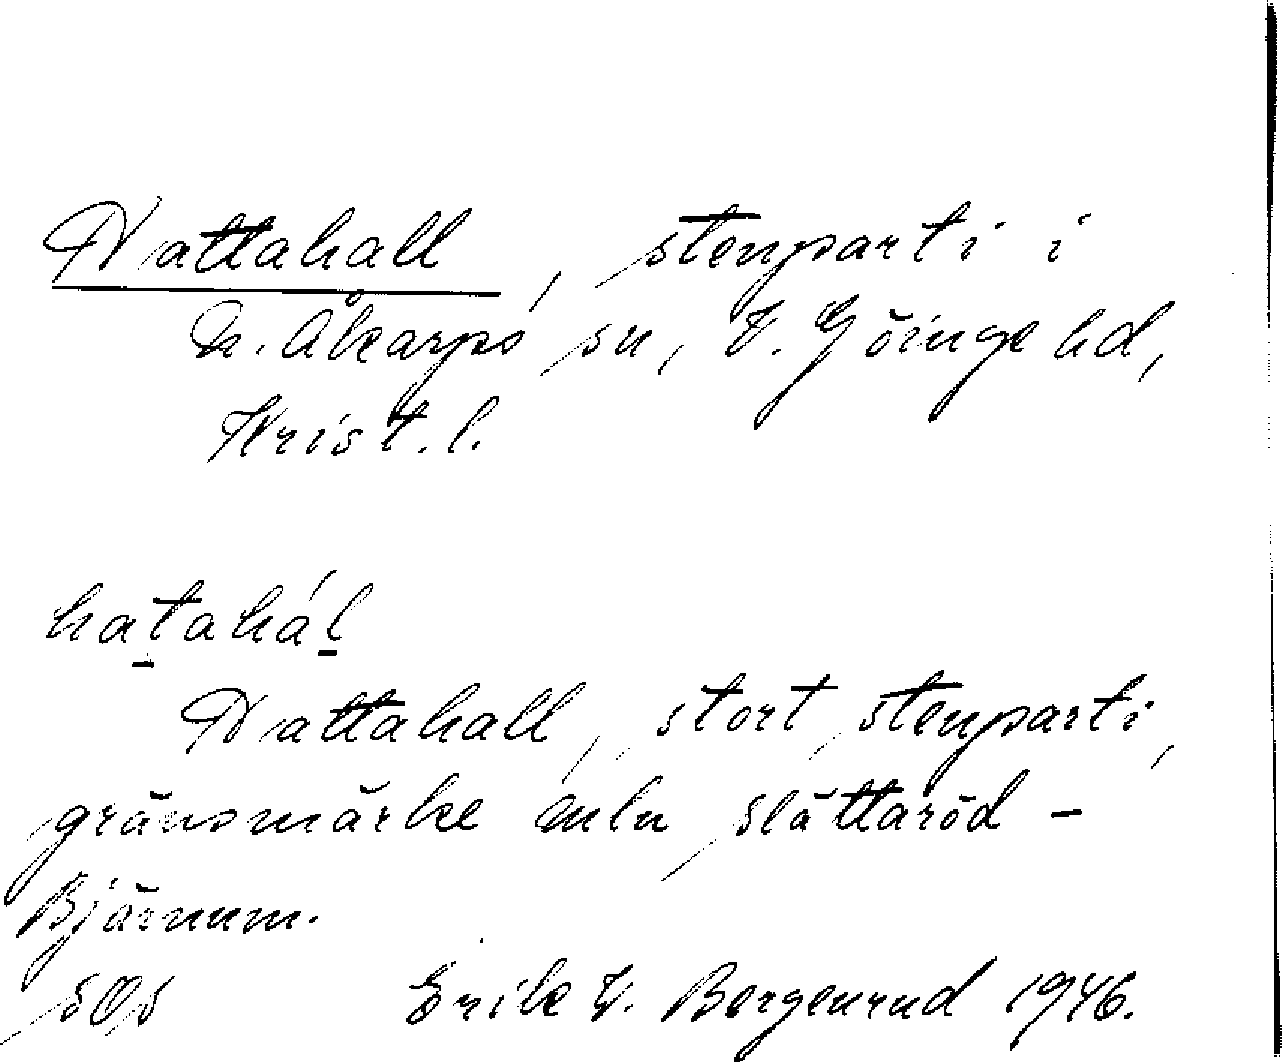 Hattahall, stenparti i
N. Åkarps sn, V. Göinge hd,
Krist. l.
hatahál
Hattahall, stort stenparti,
gränsmärke mln Slättaröd -
Bjärnum.
SOS Erik V. Bergenrud 1946.